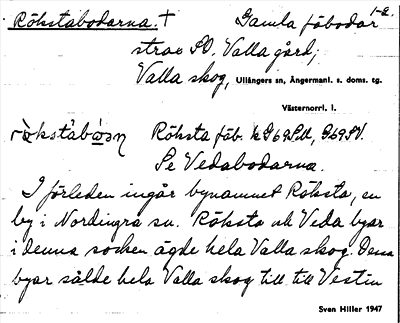 Rökstabodarna. † Gamla fäbodar 1-2.
strax SO. Valla gård;
Valla skog, Ullångers sn, Ångermanl. s. doms. tg.
Västernorrl. l.
Röksta fäb. kG69SV, G69SV.
Se Vedabodarna.
I förleden ingår bynamnet Röksta, en
by i Nordingrå sn. Röksta och Veda byar
i denna socken ägde hela Valla skog. Dessa
byar sålde hela Valla skog till till Västin
Sven Hiller 1947